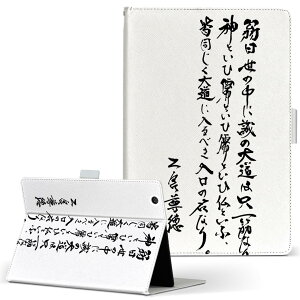 筋曰 世の中に誠の大道は只一筋なり
神といひ儒といひ仏といふ、
皆同じく大道に入るべき入口の名なり。
二宮尊徳